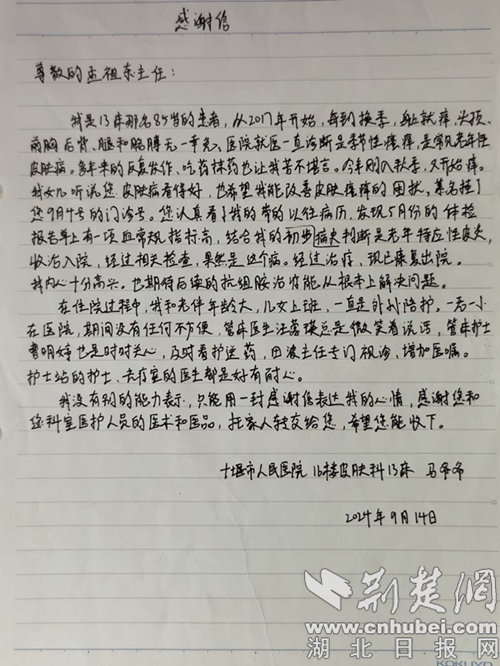 感谢信
尊敬的孟祖东主任：
我是13床那名85岁的患者，从2017年开始，每到换季，身上就痒，头顶、
前胸后背、腿和胳膊无一幸免，医院就医一直诊断是季节性瘙痒，是常见老年性
皮肤病。多年来的反复发作、吃药抹药也让我苦不堪言。今年刚入秋季，又开始痒。
我女儿听说您皮肤病看得好，也希望我能改善皮肤瘙痒的困扰，慕名挂了
您9月4号的门诊号。您认真看了我的带的以往病历，发现5月份的体检
报告单上有一项血常规指标高，结合我的初步病史判断是老年特应性皮炎，
收治入院，经过相关检查，果然是这个病。经过治疗，现已康复出院。
我内心十分高兴。也期待后续的抗组胺治疗能从根本上解决问题。
在住院过程中，我和老伴年龄大，儿女上班，一直是外孙陪护。一老一小
在医院，期间没有任何不方便，管床医生汪 总是微笑着说话，管床护士
曹明婷也是时时关心，及时看护送药，田波主任专门视诊、增加医嘱。
护士站的护士、去疗室的医生都是好有耐心。
我没有别的能力表示，只能用一封感谢信表达我的心情，感谢您和
您科室医护人员的医术和医品，托家人转交给您，希望您能收下。
十堰市人民医院 16楼皮肤科13床 马
2024年9月14日
荆楚网
www.cnhubei.com
湖北日报网
KOKUYO